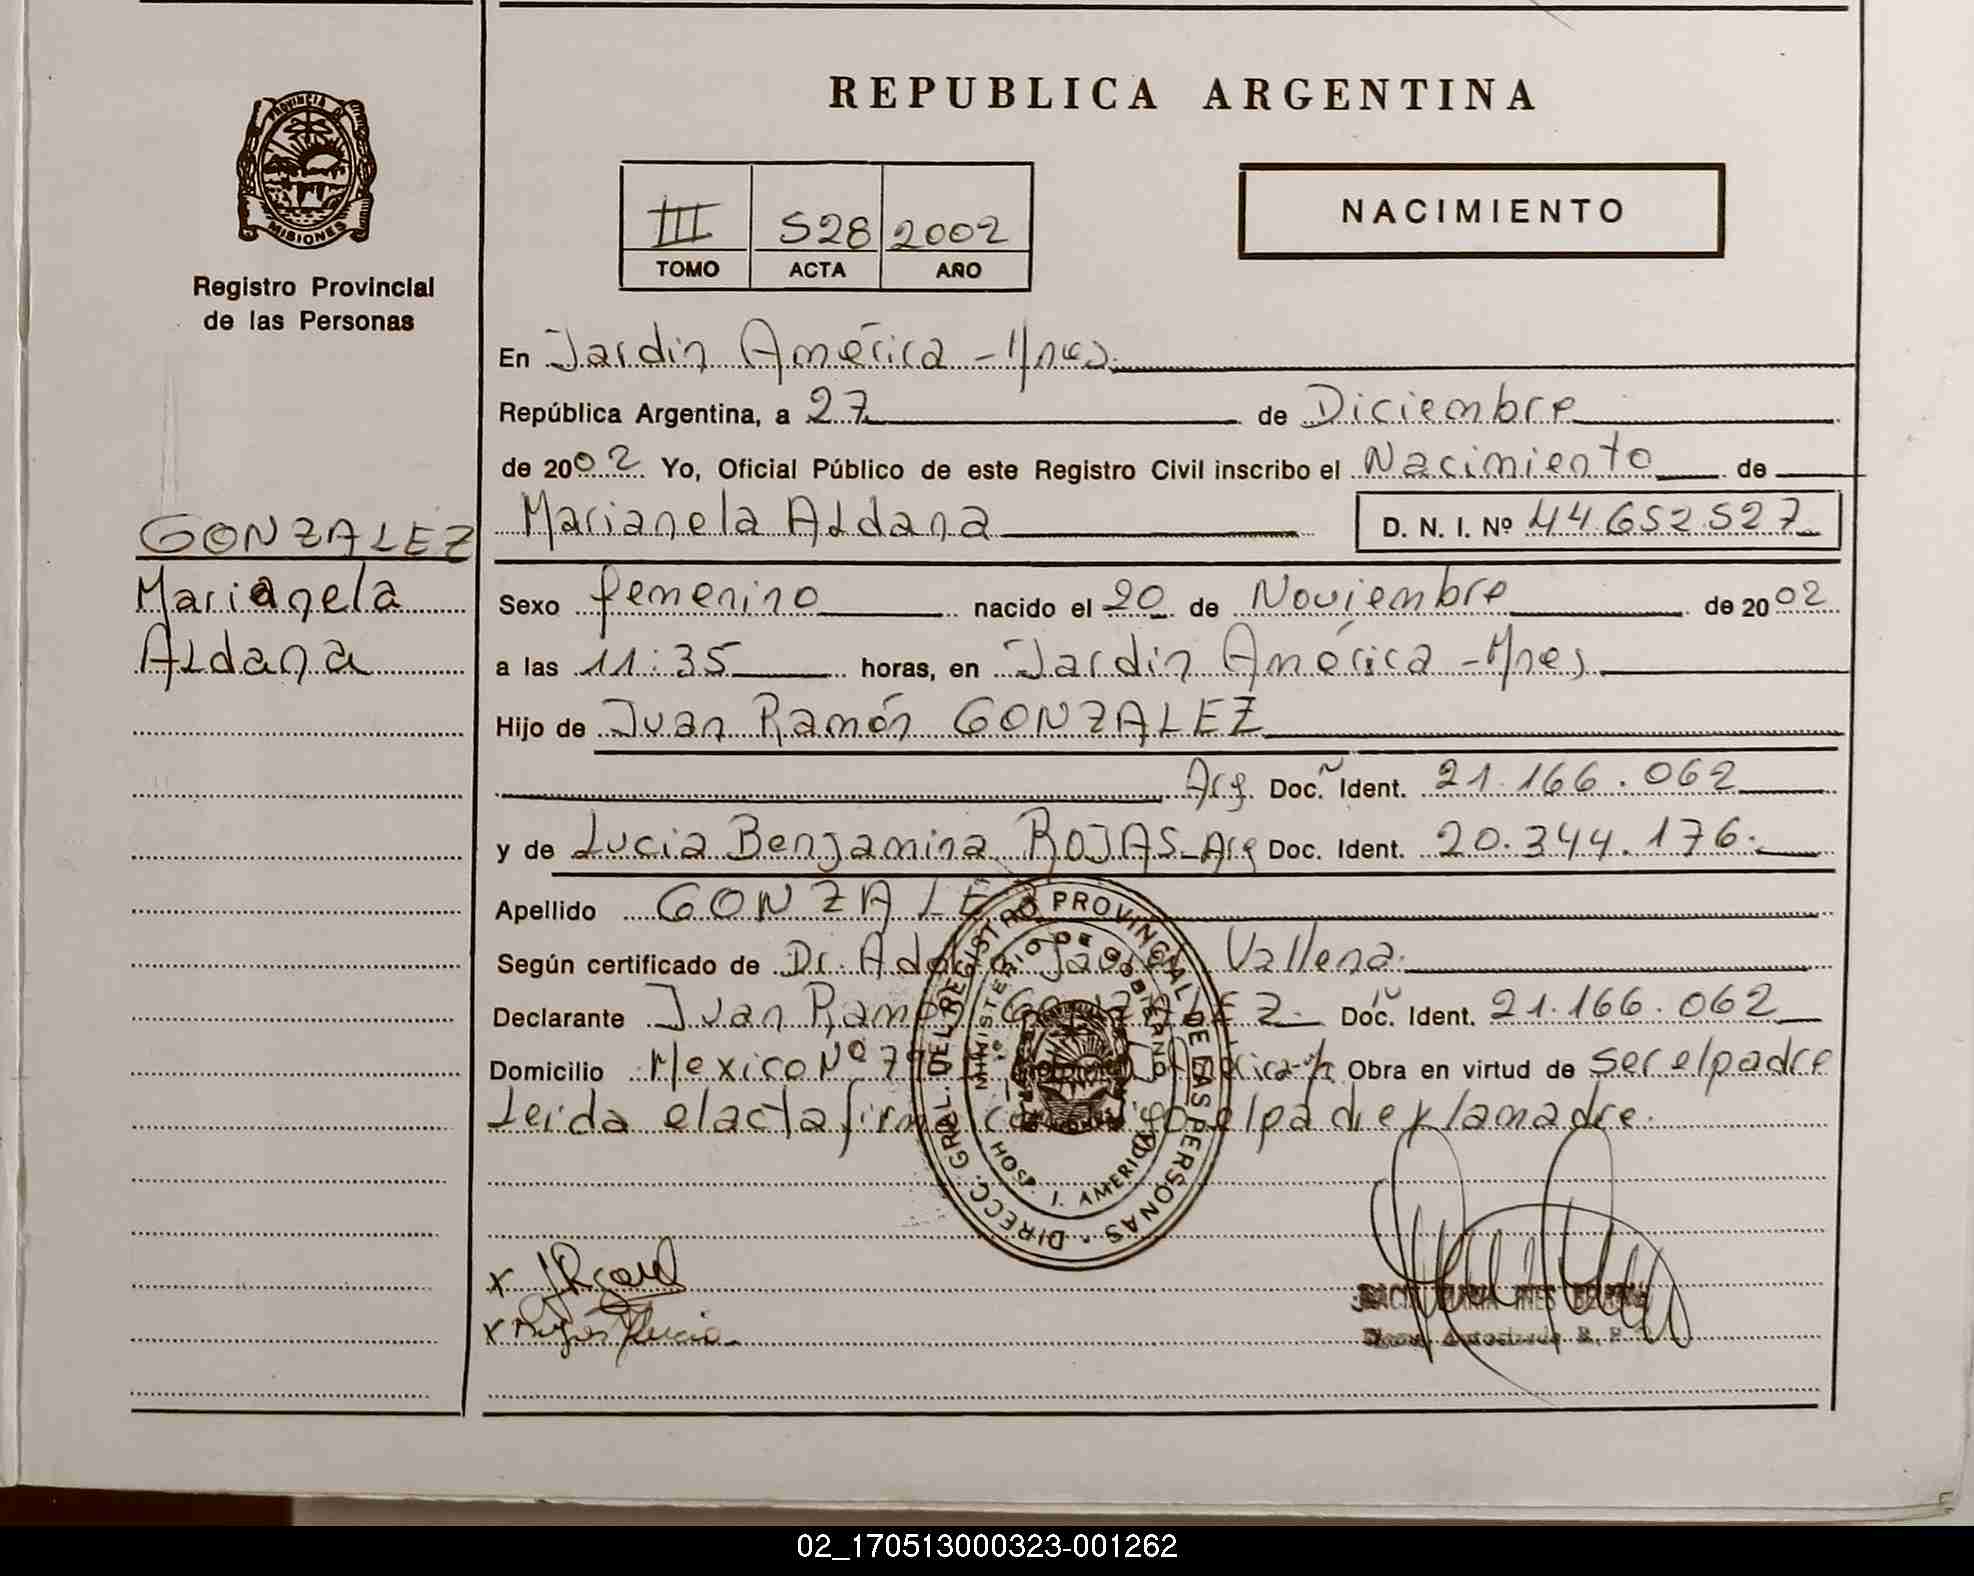 REPUBLICA ARGENTINA
PROVINCIA D
MISIONES
Registro Provincial
de las Personas
III 528 2002
TOMO ACTA AÑO
NACIMIENTO
En Jardín América - Mnes.
República Argentina, a 27 de Diciembre
de 2002 Yo, Oficial Público de este Registro Civil inscribo el Nacimiento de
GONZALEZ
Marianela
Aldana
Marianela Aldana D. N. I. Nº 44.652.527
Sexo femenino nacido el 20 de Noviembre de 2002
a las 11:35 horas, en Jardín América - Mnes
Hijo de Juan Ramón GONZALEZ
Arg. Doc. Ident. 21.166.062
y de Lucia Benjamina ROJAS - Arg Doc. Ident. 20.344.176.
Apellido GONZALE
Según certificado de Dr. Vallena.
Declarante Juan Ramón GONZALEZ. Doc. Ident. 21.166.062
Domicilio Mexico Nº Obra en virtud de ser el padre
Leida el acta el padre y la madre.
DIRECC. GRAL. DEL REGISTRO PROVINCIAL DE LAS PERSONAS
MINISTERIO DE GOBIERNO
HOSP. J. AMERICA
x
x Lucia
MARIA INES
02_170513000323-001262